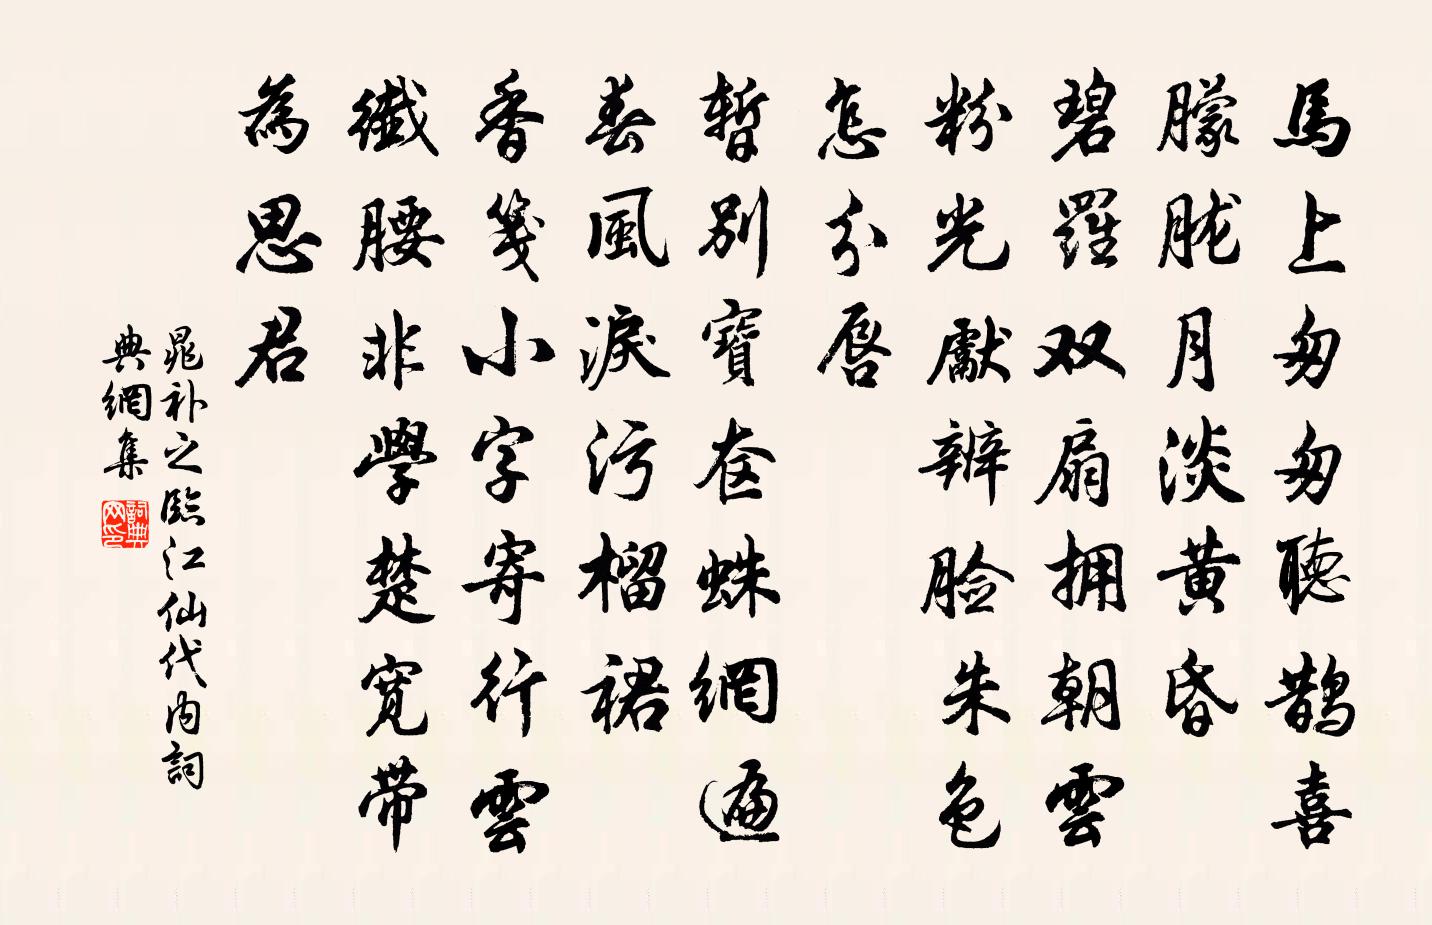 馬上匆匆聽鵲喜
朦胧月淡黄昏
碧羅双扇拥朝雲
粉光獻辨脸朱色
怎分唇
暫别寳奁蛛網遍
春風淚污榴裙
香箋小字寄行雲
纖腰非學楚宽带
為思君
晁补之臨江仙代内詞
典網集
詞典网印